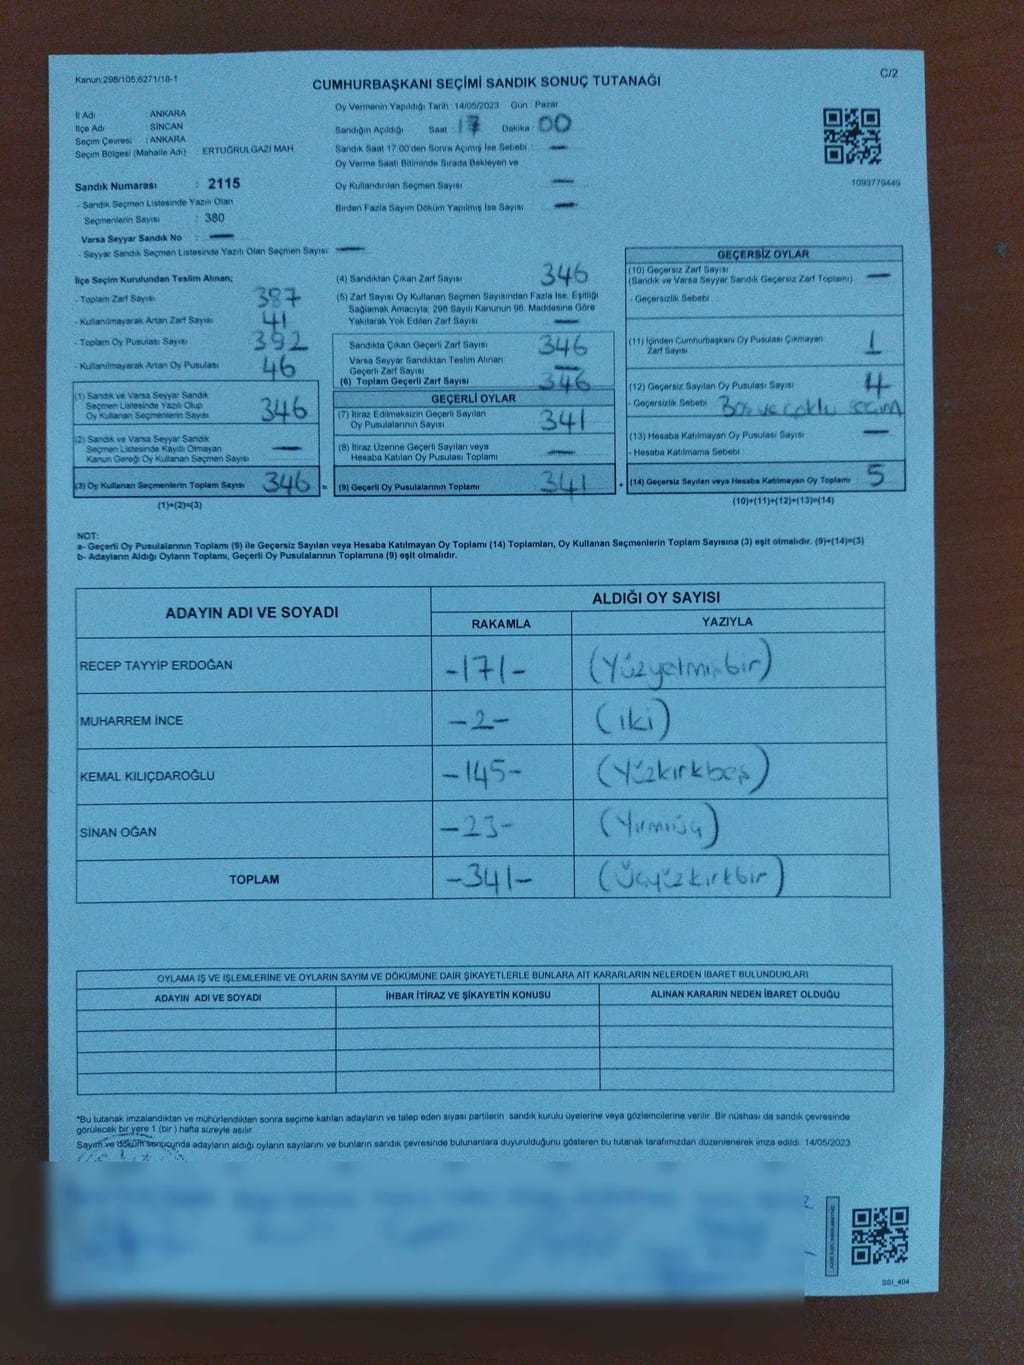 Kanun:298/105;6271/18-1
C/2
CUMHURBAŞKANI SEÇİMİ SANDIK SONUÇ TUTANAĞI
İl Adı : ANKARA
İlçe Adı : SİNCAN
Seçim Çevresi : ANKARA
Seçim Bölgesi (Mahalle Adı) : ERTUĞRULGAZİ MAH
Sandık Numarası : 2115
- Sandık Seçmen Listesinde Yazılı Olan
Seçmenlerin Sayısı : 380
Varsa Seyyar Sandık No : —
- Seyyar Sandık Seçmen Listesinde Yazılı Olan Seçmen Sayısı : —
Oy Vermenin Yapıldığı Tarih : 14/05/2023 Gün : Pazar
Sandığın Açıldığı Saat : 17 Dakika : 00
Sandık Saat 17.00'den Sonra Açılmış İse Sebebi : —
Oy Verme Saati Bitiminde Sırada Bekleyen ve
Oy Kullandırılan Seçmen Sayısı : —
Birden Fazla Sayım Döküm Yapılmış İse Sayısı : —
1093779449
İlçe Seçim Kurulundan Teslim Alınan;
- Toplam Zarf Sayısı : 387
- Kullanılmayarak Artan Zarf Sayısı : 41
- Toplam Oy Pusulası Sayısı : 392
- Kullanılmayarak Artan Oy Pusulası : 46
(1) Sandık ve Varsa Seyyar Sandık
Seçmen Listesinde Yazılı Olup
Oy Kullanan Seçmenlerin Sayısı : 346
(2) Sandık ve Varsa Seyyar Sandık
Seçmen Listesinde Kayıtlı Olmayan
Kanun Gereği Oy Kullanan Seçmen Sayısı : —
(3) Oy Kullanan Seçmenlerin Toplam Sayısı : 346 =
(1)+(2)=(3)
(4) Sandıktan Çıkan Zarf Sayısı : 346
(5) Zarf Sayısı Oy Kullanan Seçmen Sayısından Fazla İse, Eşitliği
Sağlamak Amacıyla; 298 Sayılı Kanunun 98. Maddesine Göre
Yakılarak Yok Edilen Zarf Sayısı : —
Sandıkta Çıkan Geçerli Zarf Sayısı : 346
Varsa Seyyar Sandıktan Teslim Alınan
Geçerli Zarf Sayısı : —
(6) Toplam Geçerli Zarf Sayısı : 346
GEÇERLİ OYLAR
(7) İtiraz Edilmeksizin Geçerli Sayılan
Oy Pusulalarının Sayısı : 341
(8) İtiraz Üzerine Geçerli Sayılan veya
Hesaba Katılan Oy Pusulası Toplamı : —
(9) Geçerli Oy Pusulalarının Toplamı : 341 +
GEÇERSİZ OYLAR
(10) Geçersiz Zarf Sayısı
(Sandık ve Varsa Seyyar Sandık Geçersiz Zarf Toplamı) : —
- Geçersizlik Sebebi :
(11) İçinden Cumhurbaşkanı Oy Pusulası Çıkmayan
Zarf Sayısı : 1
(12) Geçersiz Sayılan Oy Pusulası Sayısı : 4
- Geçersizlik Sebebi : Boş ve çoklu seçim
(13) Hesaba Katılmayan Oy Pusulası Sayısı : —
- Hesaba Katılmama Sebebi :
(14) Geçersiz Sayılan veya Hesaba Katılmayan Oy Toplamı : 5
(10)+(11)+(12)+(13)=(14)
NOT:
a- Geçerli Oy Pusulalarının Toplamı (9) ile Geçersiz Sayılan veya Hesaba Katılmayan Oy Toplamı (14) Toplamları, Oy Kullanan Seçmenlerin Toplam Sayısına (3) eşit olmalıdır. (9)+(14)=(3)
b- Adayların Aldığı Oyların Toplamı, Geçerli Oy Pusulalarının Toplamına (9) eşit olmalıdır.
ADAYIN ADI VE SOYADI ALDIĞI OY SAYISI
RAKAMLA YAZIYLA
RECEP TAYYİP ERDOĞAN -171- (Yüzyetmişbir)
MUHARREM İNCE -2- (iki)
KEMAL KILIÇDAROĞLU -145- (Yüzkırkbeş)
SİNAN OĞAN -23- (Yirmiüç)
TOPLAM -341- (Üçyüzkırkbir)
OYLAMA İŞ VE İŞLEMLERİNE VE OYLARIN SAYIM VE DÖKÜMÜNE DAİR ŞİKAYETLERLE BUNLARA AİT KARARLARIN NELERDEN İBARET BULUNDUKLARI
ADAYIN ADI VE SOYADI İHBAR İTİRAZ VE ŞİKAYETİN KONUSU ALINAN KARARIN NEDEN İBARET OLDUĞU
*Bu tutanak imzalandıktan ve mühürlendikten sonra seçime katılan adayların ve talep eden siyasi partilerin sandık kurulu üyelerine veya gözlemcilerine verilir. Bir nüshası da sandık çevresinde
görülecek bir yere 1 (bir) hafta süreyle asılır.
Sayım ve döküm sonucunda adayların aldığı oyların sayılarını ve bunların sandık çevresinde bulunanlara duyurulduğunu gösteren bu tutanak tarafımızdan düzenlenerek imza edildi. 14/05/2023
SSI_404